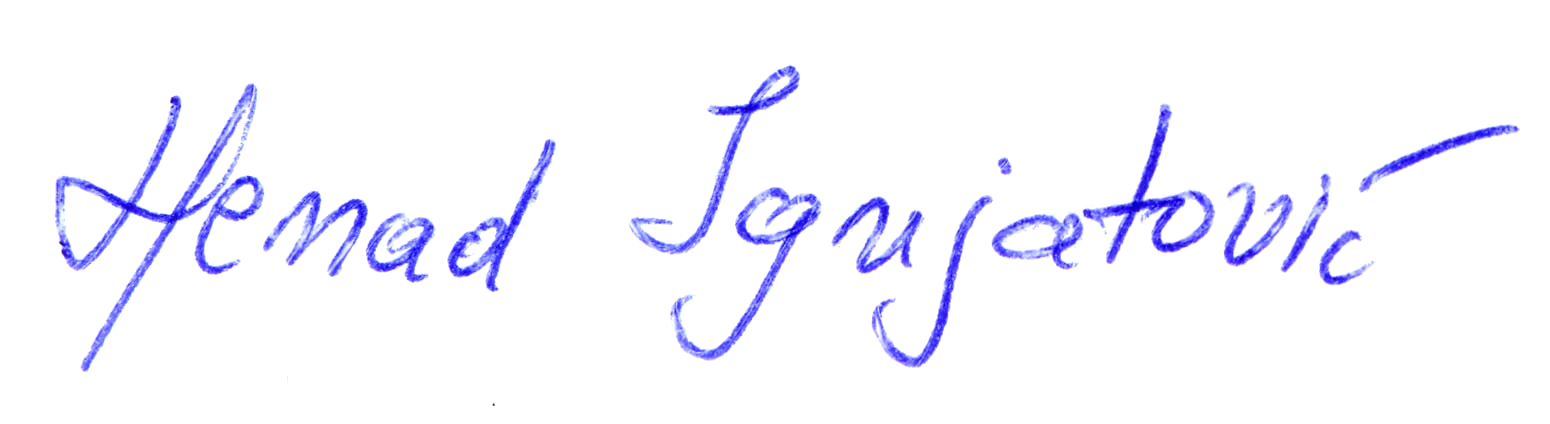 Nenad Ignjatović